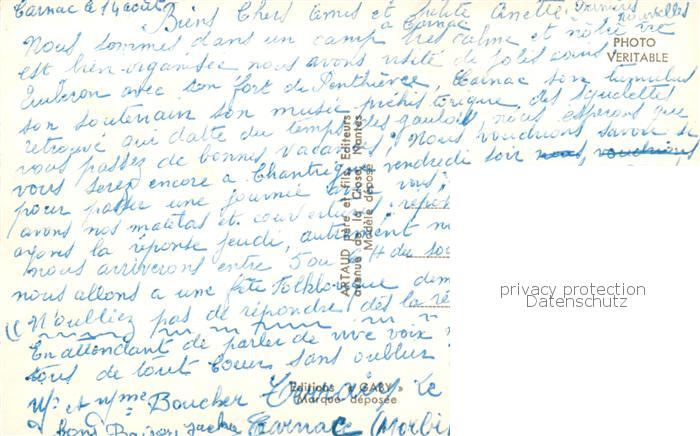 Carnac le 14 août
Biens Chers amis et petite Anette
Dernières nouvelles
Nous sommes dans un camp à Carnac très calme et nôtre vie
est bien organisée nous avons visité de jolis coins
avec son fort de Penthièvre, Carnac son tumulus
son souterrain son musée préhistorique, des squelettes
retrouvé qui datte du temps des gaulois, nous espérons que
vous passez de bonnes vacances, Nous voudrions savoir si
vous serez encore a Chantrigné vendredi soir nous voudrions
pour passer une journée avec vous,
avons nos matelas et couvertures,
ayons la réponse jeudi, autrement
nous arriverons entre 5 ou
nous allons a une fête Folklorique
N'oubliez pas de répondre dès la
En attendant de parler de vive voix
tous de tout Coeur sans oublier
Mr et Mme Boucher
bons Baisers Carnac (Morbi
PHOTO
VERITABLE
ARTAUD père et fils Editeurs
avenue de la Close, Nantes
Modèle déposé
Editions « GABY »
Marque déposée
privacy protection
Datenschutz